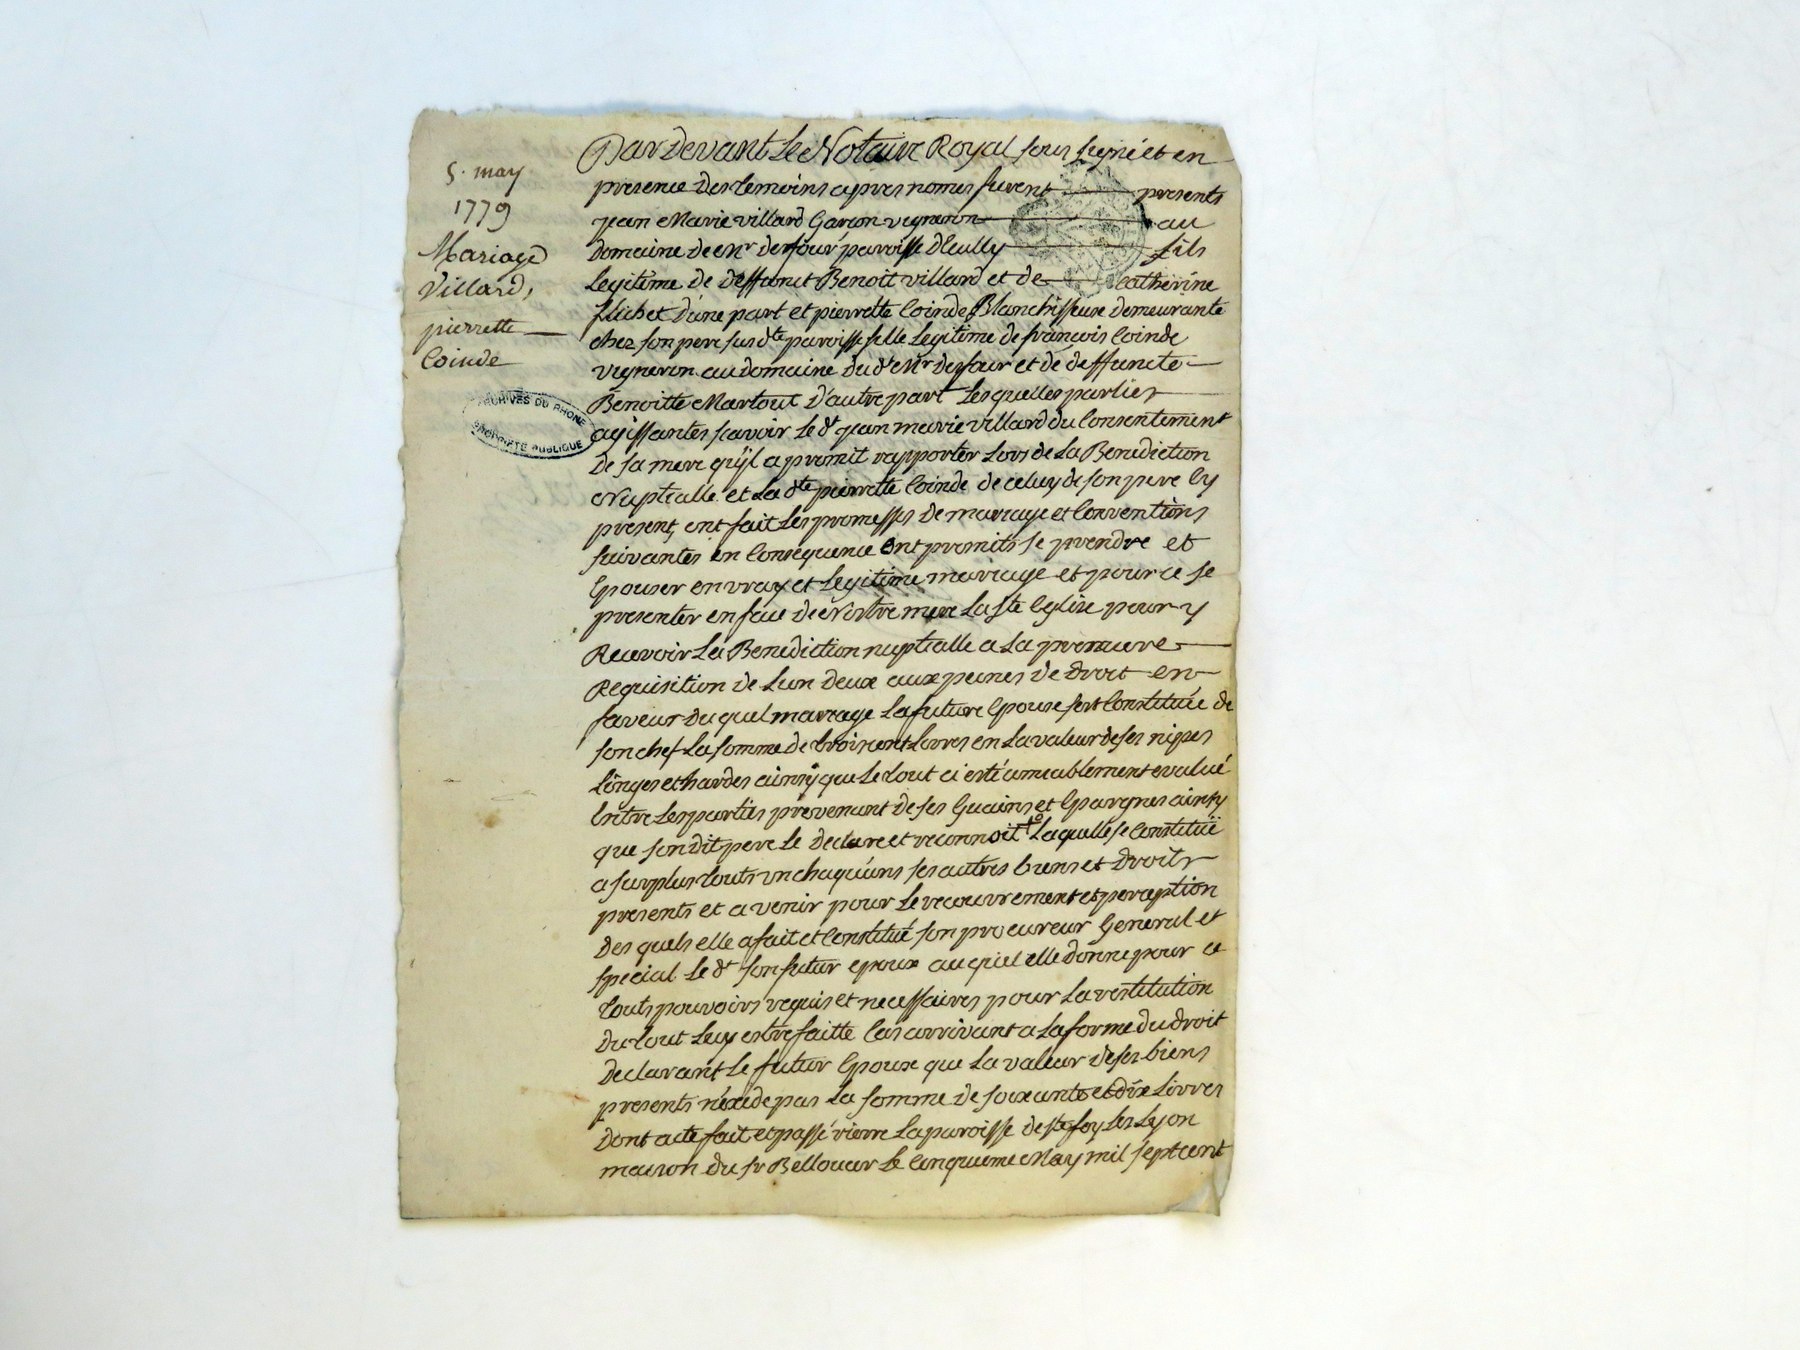 5. may
1779
Mariage
Villard,
pierrette
Coinde
ARCHIVES DU RHONE
PROPRIETE PUBLIQUE
Pardevant Le Notaire Royal sous signé et en
presence des temoins apres nomes furent presents
jean Marie villard Garçon vigneron au
domaine de Mr. dufour paroisse decully fils
Legitime de deffunct Benoit villard et de Catherine
d'une part et pierrette Coinde Blanchisseuse demeurante
chez son pere susdte paroisse fille Legitime de françois Coinde
vigneron au domaine du dt Mr dufour et de deffuncte
Benoitte Martout D'autre part Lesquelles parties
agissantes scavoir Le dt jean marie villard du Consentement
De sa mere qu'il a promit rapporter Lors de La Benediction
Nuptialle et La dte pierrette Coinde de celuy de son pere Cy
present, ont fait Les promesses De mariage et Conventions
suivantes en Consequence ont promits se prendre et
Epouser en vray et Legitime mariage et pour ce se
presenter en face de Nostre mere La ste Eglise pour y
Recevoir La Benediction nuptialle a La premiere
Requisition de L'un deux aux peines de droit en
faveur du quel mariage La future Epouse sest Constituée de
son chef La somme de trois cent Livres en La valeur de ses nipes
Linges et hardes ainsy que Le tout a esté amiablement evalué
Entre Les parties provenant de ses Guains et Epargnes ainsy
que son dit pere Le declare et reconnoit Laquelle se Constitüe
a surplus touts un chaquuns ses autres biens et droits
presents et avenir pour Le recouvrement et perception
Des quels elle a fait et Constitué son procureur General et
special Le dt son futur epoux auquel elle donne pour ce
touts pouvoirs requis et necessaires pour La restitution
Du tout Luy estre faitte Cas arrivant a La forme du droit
Declarant Le futur Epoux que La valeur de ses biens
presents n'exède pas La somme de soixante et dix Livres
Dont acte fait et passé riere La paroisse de ste foy Les Lyon
maison du sr Bellouar Le Cinquieme May mil sept cent